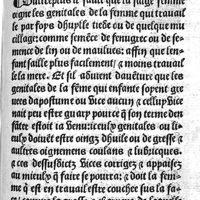 Oultreplus il fault que la saige femme
oigne les genitales de la femme qui travail
le par foys dhuylle tiede ou de quelque mu
cillage: comme semēce de fenugrec ou de se
mence de lin ou de maulues: affin que lenf
fant saille plus facilement/ a moins travail
le la mere. Et sil advient daventure que les
genitales de la fēme qui enfante soyent gre
uees dapostume ou vice aucun/ a celluy vice
nait peu estre guary pource q̄ son terme den
fāter estoit ia venu: iceulx genitales ou li
eulx doivēt estre oingz dhuile ou de gresse/ a
aultres oignemens coulans a lubriques.
a ces dessusditz vices corrigez a appaisez
au mieulx q̄ faire se pourra: a doit la fem̄
me q̄ est en travail estre couchee sus la fa